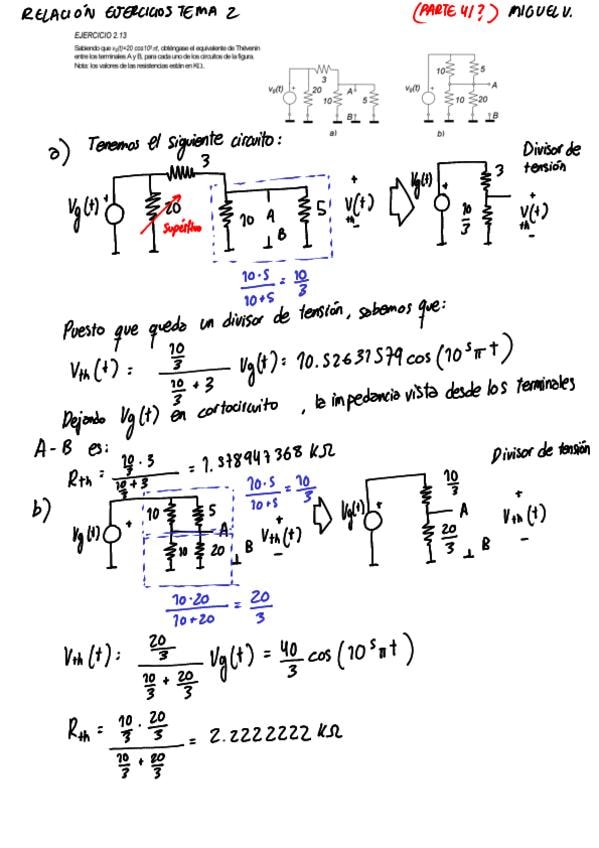 RELACIÓN EJERCICIOS TEMA 2 (PARTE 4/?) MIGUEL V.
EJERCICIO 2.13
Sabiendo que vg(t)=20 cos10⁵πt, obténgase el equivalente de Thévenin
entre los terminales A y B, para cada uno de los circuitos de la figura.
Nota: los valores de las resistencias están en KΩ.
vg(t) + 20 3 10 A B 5
a)
vg(t) + 10 5 A 10 20 B
b)
a) Tenemos el siguiente circuito:
Vg(t) + 20 Supérfluo 3 10 A B 5 + Vth(t) -
Vg(t) + 3 10/3 + Vth(t) -
Divisor de
tensión
10·5/10+5 = 10/3
Puesto que queda un divisor de tensión, sabemos que:
Vth(t) = 10/3 / (10/3 + 3) Vg(t) = 10.52631579 cos(10⁵πt)
Dejando Vg(t) en cortocircuito, la impedancia vista desde los terminales
A-B es:
Rth = (10/3 · 3) / (10/3 + 3) = 1.578947368 KΩ
b)
Vg(t) + 10 5 A 10 20 B + Vth(t) -
10·5/10+5 = 10/3
Divisor de tensión
Vg(t) + 10/3 A 20/3 B + Vth(t) -
10·20/10+20 = 20/3
Vth(t): 20/3 / (10/3 + 20/3) Vg(t) = 40/3 cos(10⁵πt)
Rth = (10/3 · 20/3) / (10/3 + 20/3) = 2.2222222 KΩ